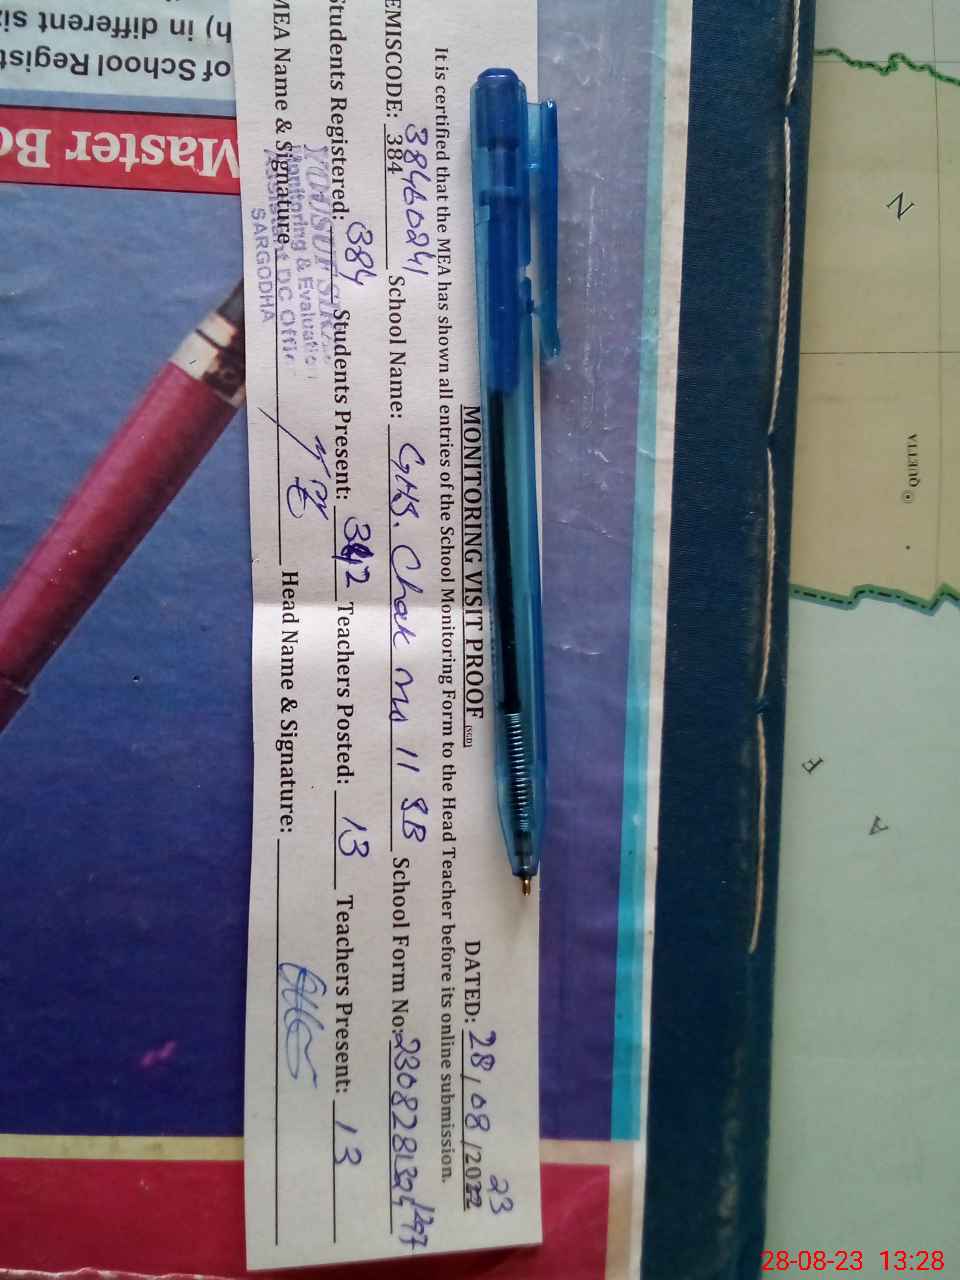 MONITORING VISIT PROOF (SGD) DATED: 28/08/2022 23
It is certified that the MEA has shown all entries of the School Monitoring Form to the Head Teacher before its online submission.
EMISCODE: 384 38460241 School Name: GHS. Chak No 11 SB School Form No:
Students Registered: 384 Students Present: 342 Teachers Posted: 13 Teachers Present: 13
MEA Name & Signature Head Name & Signature:
Monitoring & Evaluation
Assistant DC Offic
SARGODHA
Master Bo
of School Regist
h) in different si
N
QUETTA
F
A
28-08-23 13:28